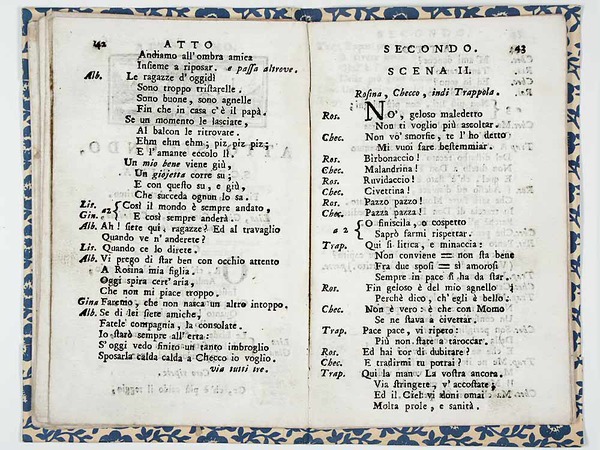 42 ATTO
Andiamo all'ombra amica
Insieme a riposar. e passa altrove.
Alb. Le ragazze d'oggidì
Sono troppo tristarelle.
Sono buone, sono agnelle
Fin che in casa c'è il papà.
Se un momento le lasciate,
Al balcon le ritrovate.
Ehm ehm ehm; piz piz piz;
E l'amante eccolo lì.
Un mio bene viene giù,
Un giojetta corre su;
E con questo su, e giù,
Che succeda ognun lo sa.
Lis. Così il mondo è sempre andato,
Gin. a 2 E così sempre anderà.
Alb. Ah! siete quì, ragazze? Ed al travaglio
Quando ve n'anderete?
Lis. Quando ce lo direte.
Alb. Vi prego di star ben con occhio attento
A Rosina mia figlia.
Oggi spira cert'aria,
Che non mi piace troppo.
Gin. Faremo, che non nasca un altro intoppo.
Alb. Se di lei siete amiche,
Fatele compagnia, la consolate.
Io starò sempre all'erta:
S'oggi vedo finito un tanto imbroglio
Sposarla calda calda a Checco io voglio.
via tutti tre.
SECONDO. 43
SCENA II.
Rosina, Checco, indi Trappola.
Ros. NO', geloso maledetto
Non ti voglio più ascoltar.
Chec. Non vò smorfie, te l'ho detto
Mi vuoi fare bestemmiar.
Ros. Birbonaccio!
Chec. Malandrina!
Ros. Ruvidaccio!
Chec. Civettina!
Ros. Pazzo pazzo!
Chec. Pazza pazza!
a 2 O finiscila, o cospetto
Saprò farmi rispettar.
Trap. Qui si litica, e minaccia:
Non conviene = non sta bene
Fra due sposi = sì amorosi
Sempre in pace si ha da star.
Ros. Fin geloso è del mio agnello
Perchè dico, ch'egli è bello.
Chec. Non è vero: è che con Momo
Se ne stava a civettar.
Trap. Pace pace, vi ripero:
Più non state a taroccar.
Ros. Ed hai cor di dubitare?
Chec. E tradirmi tu potrai?
Trap. Qui la man. La vostra ancora.
Via stringete, v'accostate,
Ed il Ciel vi doni omai
Molta prole, e sanità.